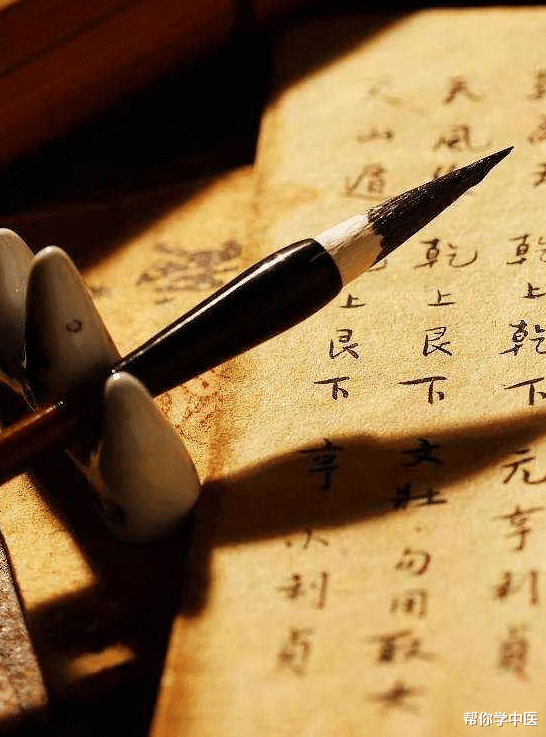 乾上乾下 元亨利貞
天風 乾上艮下 女壯.勿用取女
山遁 上艮下 亨小利貞
帮你学中医